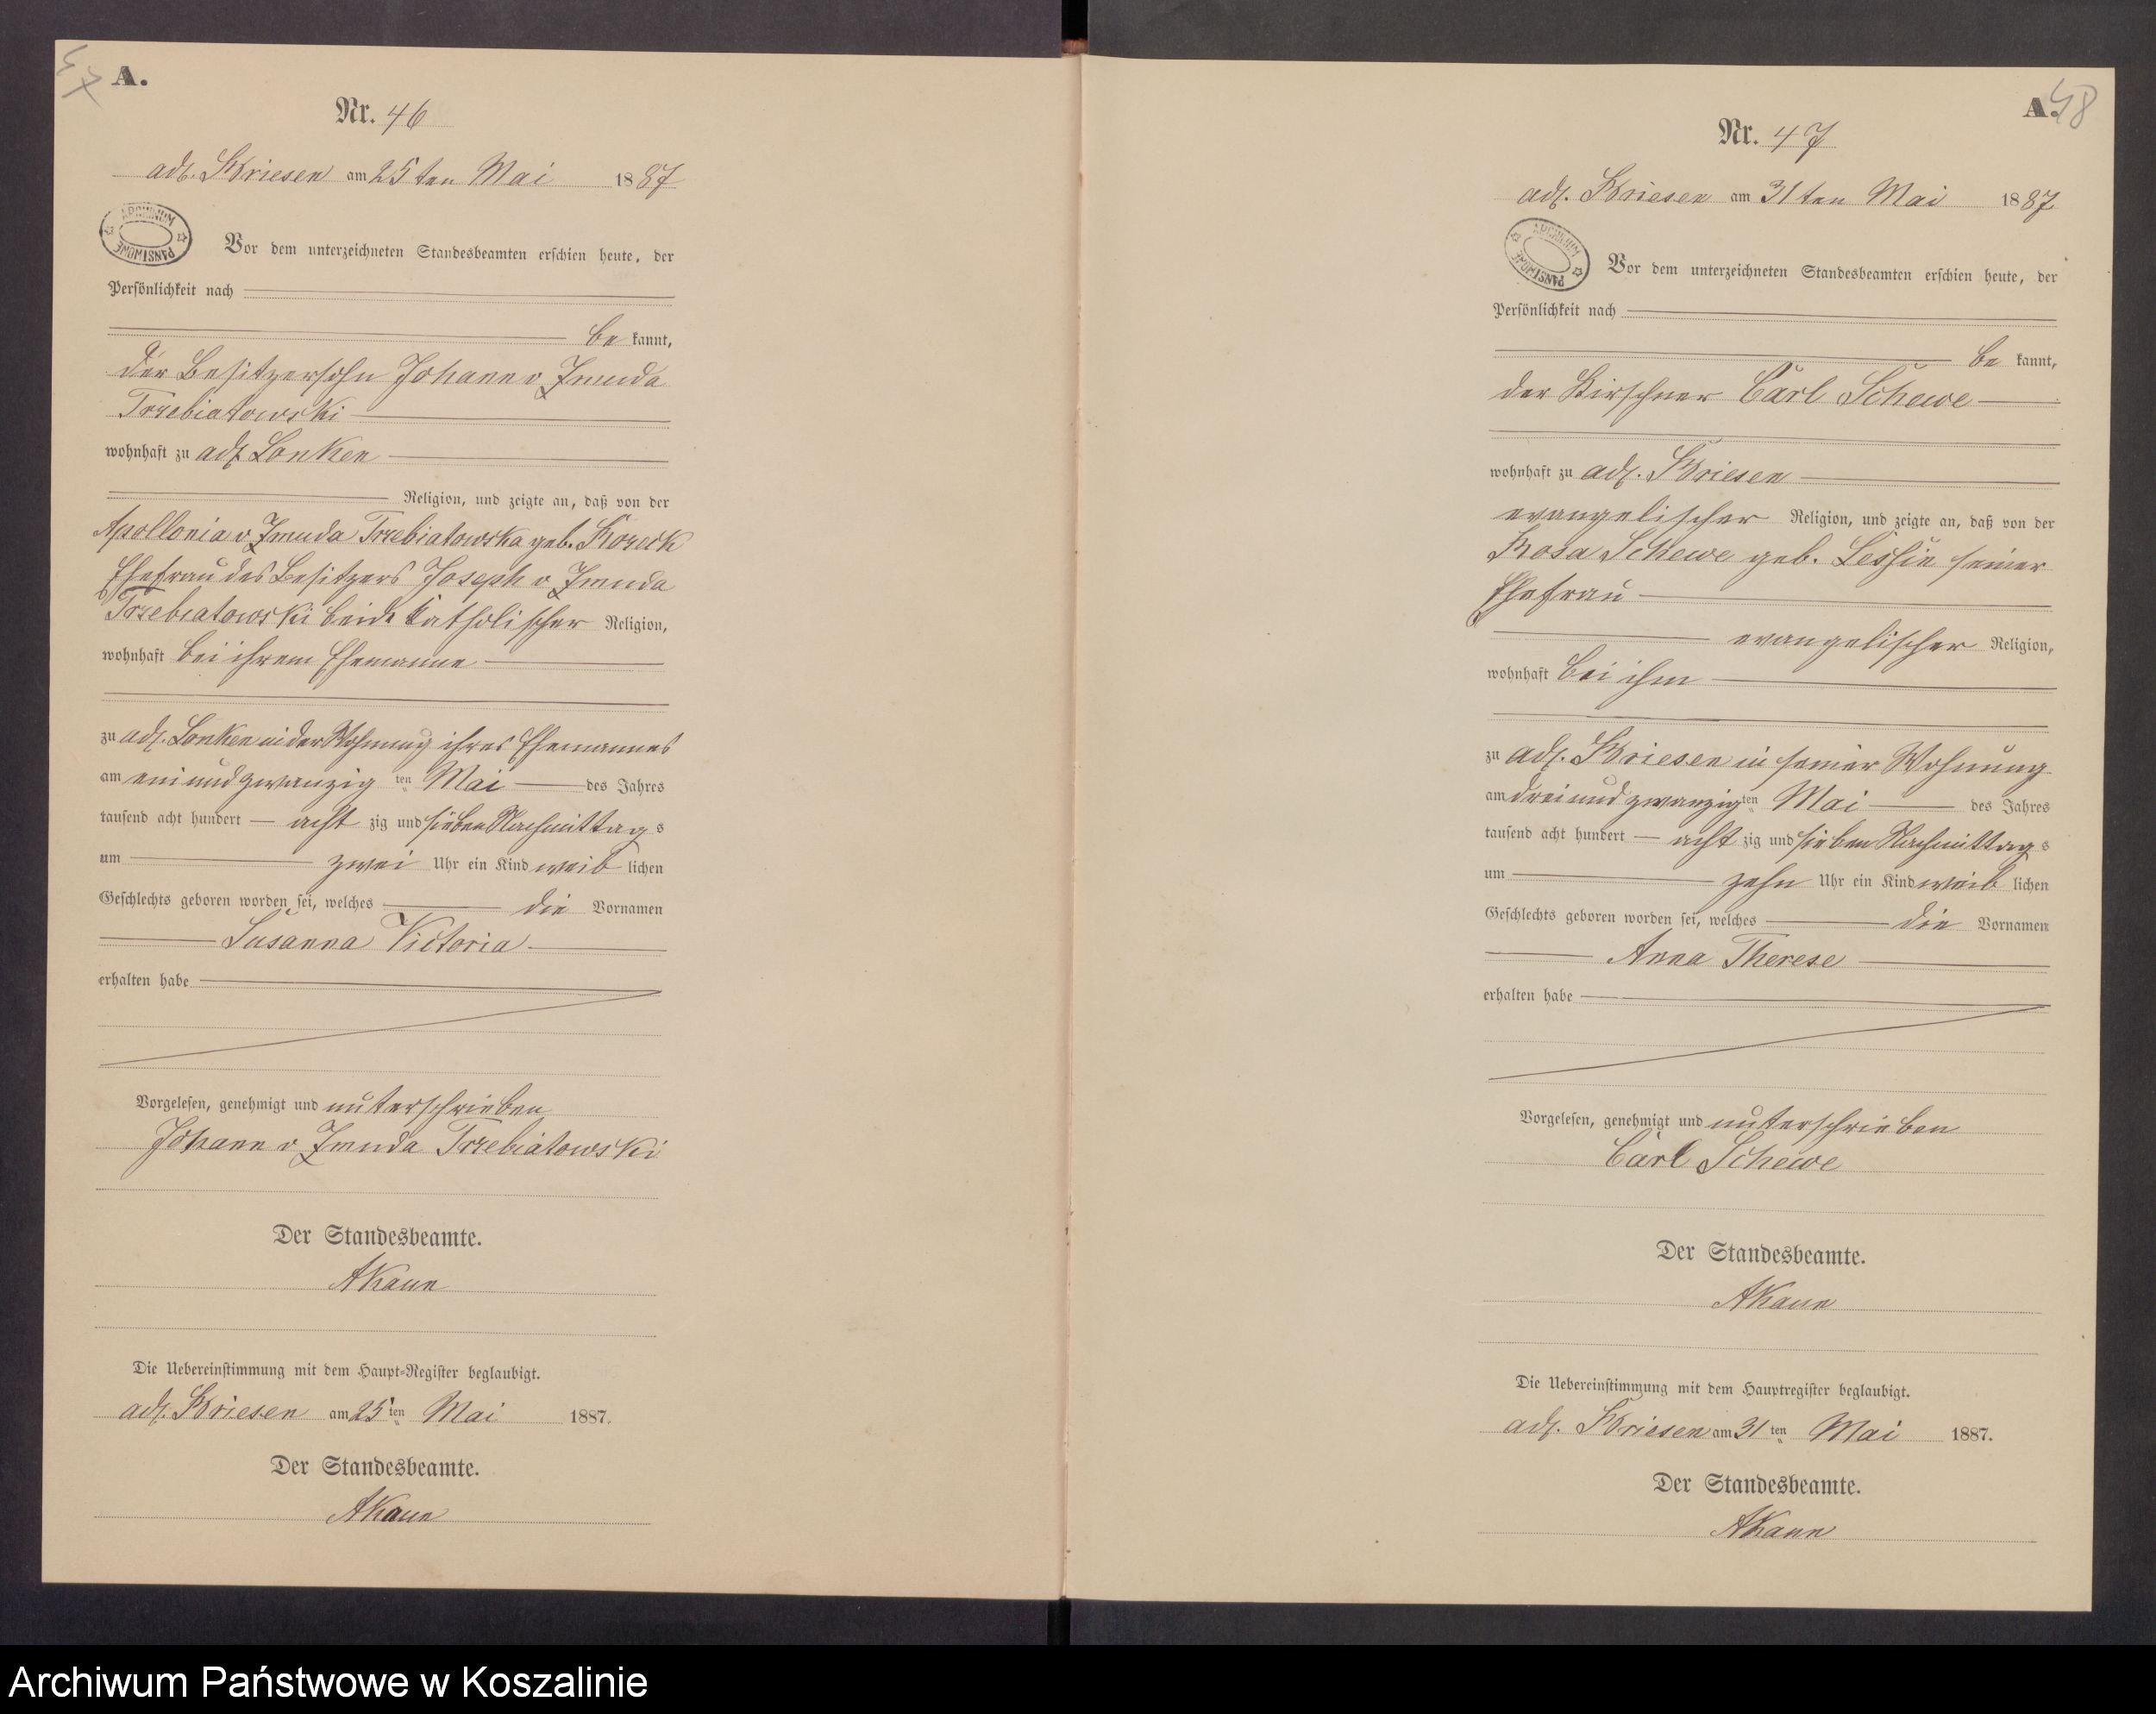 A.
Nr. 46
adl. Briesen am 25ten Mai 1887
ARCHIWUM PAŃSTWOWE
Vor dem unterzeichneten Standesbeamten erschien heute, der
Persönlichkeit nach
be kannt,
der Besitzersohn Johann v Zmuda
Trzebiatowski
wohnhaft zu adl Lonken
Religion, und zeigte an, daß von der
Apollonia v Zmuda Trzebiatowska geb.
Ehefrau des Besitzers Joseph v Zmuda
Trzebiatowski beide katholischer Religion,
wohnhaft bei ihrem Ehemanne
zu adl. Lonken in der Wohnung ihres Ehemannes
am ein und zwanzig ten Mai des Jahres
tausend acht hundert acht zig und sieben Nachmittags
um zwei Uhr ein Kind weib lichen
Geschlechts geboren worden sei, welches die Vornamen
Susanna Victoria
erhalten habe
Vorgelesen, genehmigt und unterschrieben
Johann v Zmuda Trzebiatowski
Der Standesbeamte.
Die Uebereinstimmung mit dem Haupt-Register beglaubigt.
adl. Briesen am 25ten Mai 1887.
Der Standesbeamte.
A. 48
Nr. 47
adl. Briesen am 31ten Mai 1887
ARCHIWUM PAŃSTWOWE
Vor dem unterzeichneten Standesbeamten erschien heute, der
Persönlichkeit nach
be kannt,
der Kirschner Carl Schewe
wohnhaft zu adl. Briesen
evangelischer Religion, und zeigte an, daß von der
Rosa Schewe geb. seiner
Ehefrau
evangelischer Religion,
wohnhaft bei ihm
zu adl. Briesen in seiner Wohnung
am drei und zwanzigten Mai des Jahres
tausend acht hundert acht zig und sieben Nachmittags
um zehn Uhr ein Kind weib lichen
Geschlechts geboren worden sei, welches die Vornamen
Anna Therese
erhalten habe
Vorgelesen, genehmigt und unterschrieben
Carl Schewe
Der Standesbeamte.
Die Uebereinstimmung mit dem Hauptregister beglaubigt.
adl. Briesen am 31ten Mai 1887.
Der Standesbeamte.
Archiwum Państwowe w Koszalinie